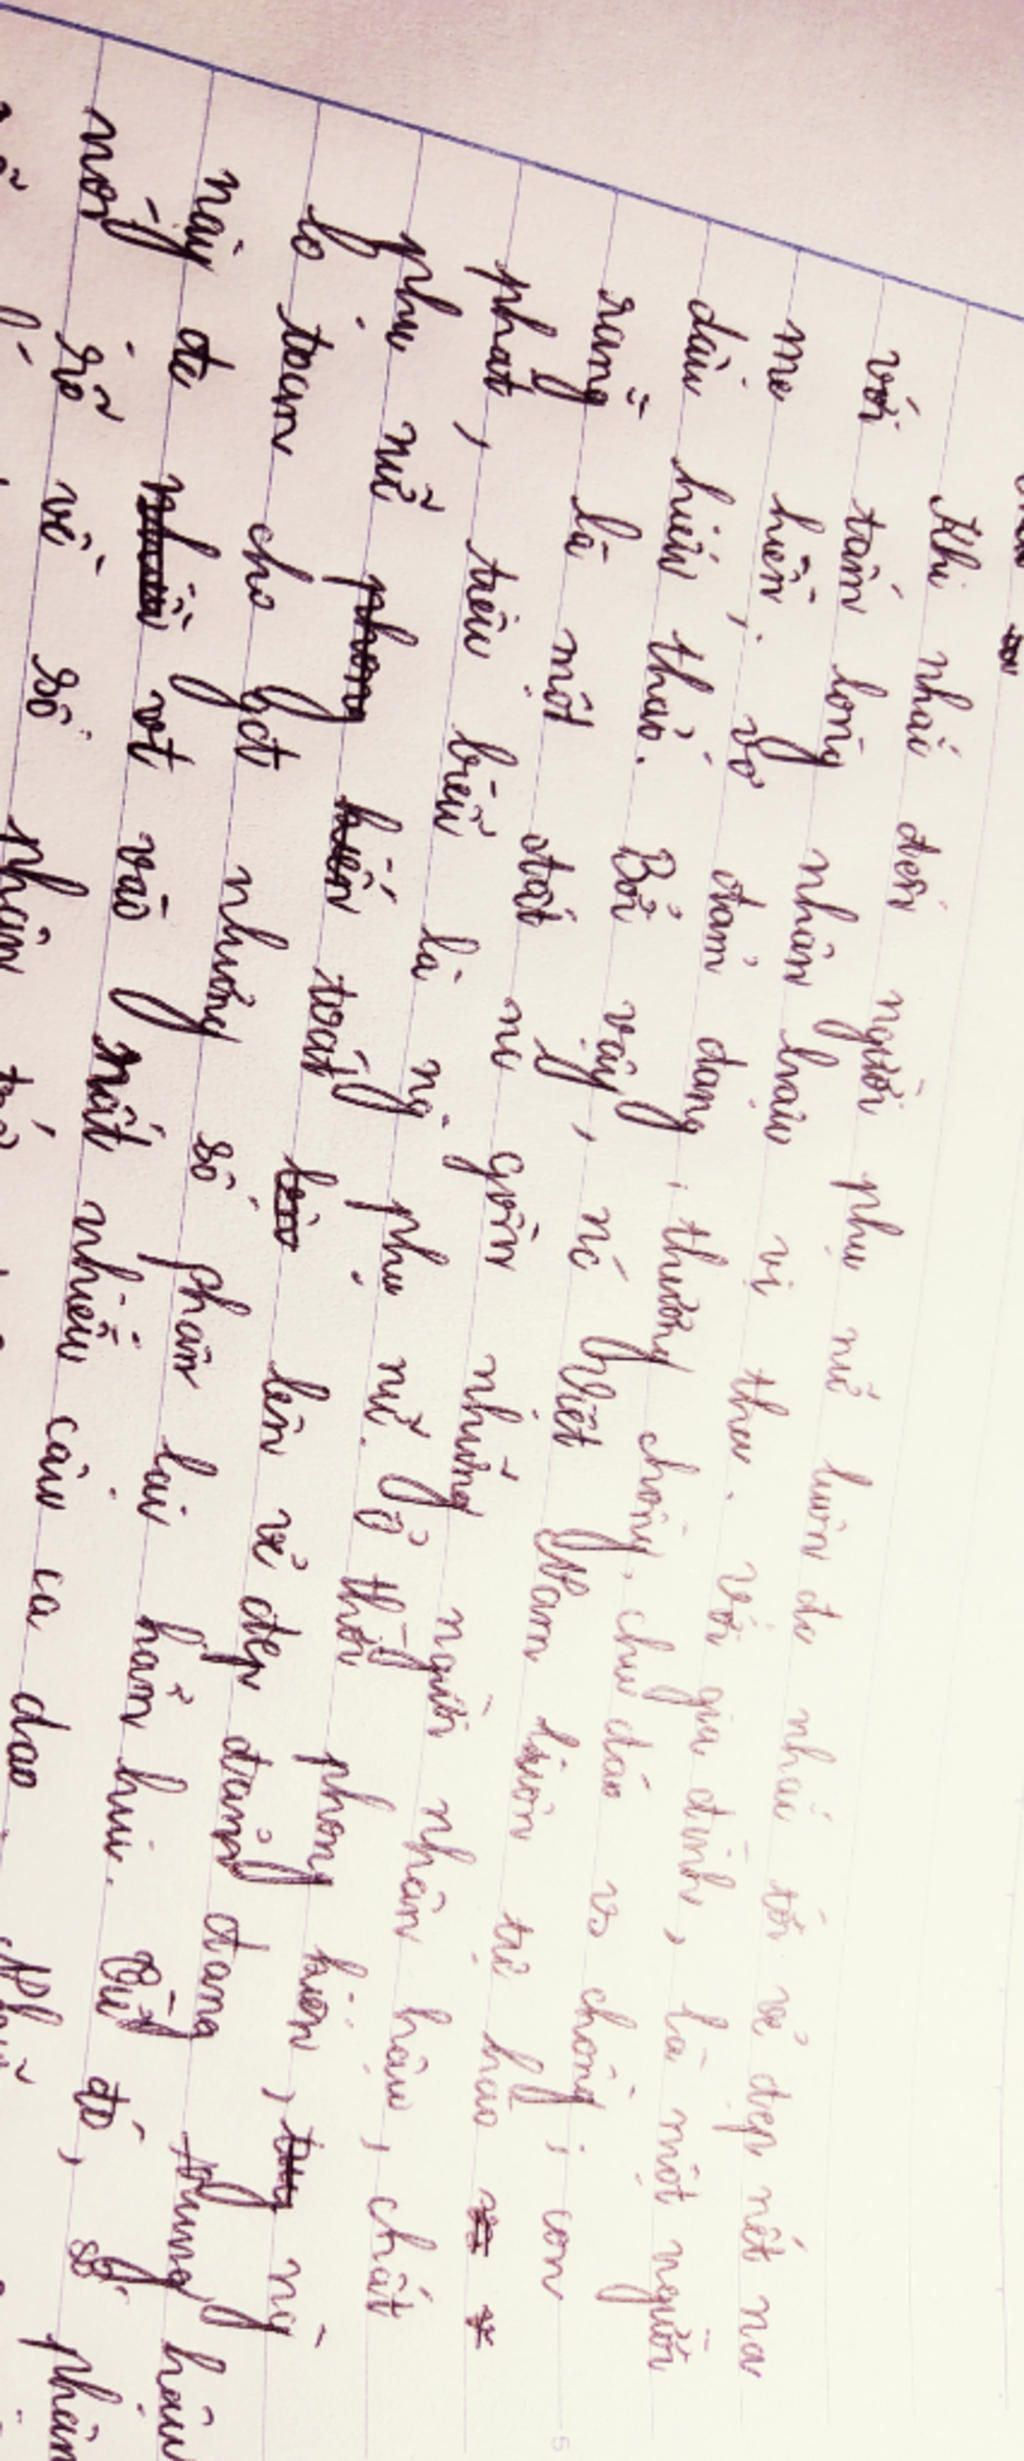 Khi nhắc đến người phụ nữ luôn đc nhắc tới vẻ đẹp nét na
với tấm lòng nhân hậu vị tha. với gia đình, là một người
mẹ hiền; vợ đảm đang, thương chồng, chu đáo vs chồng; con
dâu hiếu thảo. Bởi vậy, nc Việt Nam luôn tự hào
rằng là một đất nc gồm những người nhân hậu, chất
phát, tiêu biểu là ng. phụ nữ. Ở thời phong kiến, ng
phụ nữ toát lên vẻ đẹp đảm đang trung hậu
lo toan cho gđ nhưng số phận lại hẩm hiu. Từ đó, số phận
này đc vt vào rất nhiều câu ca dao
nói rõ về số phận